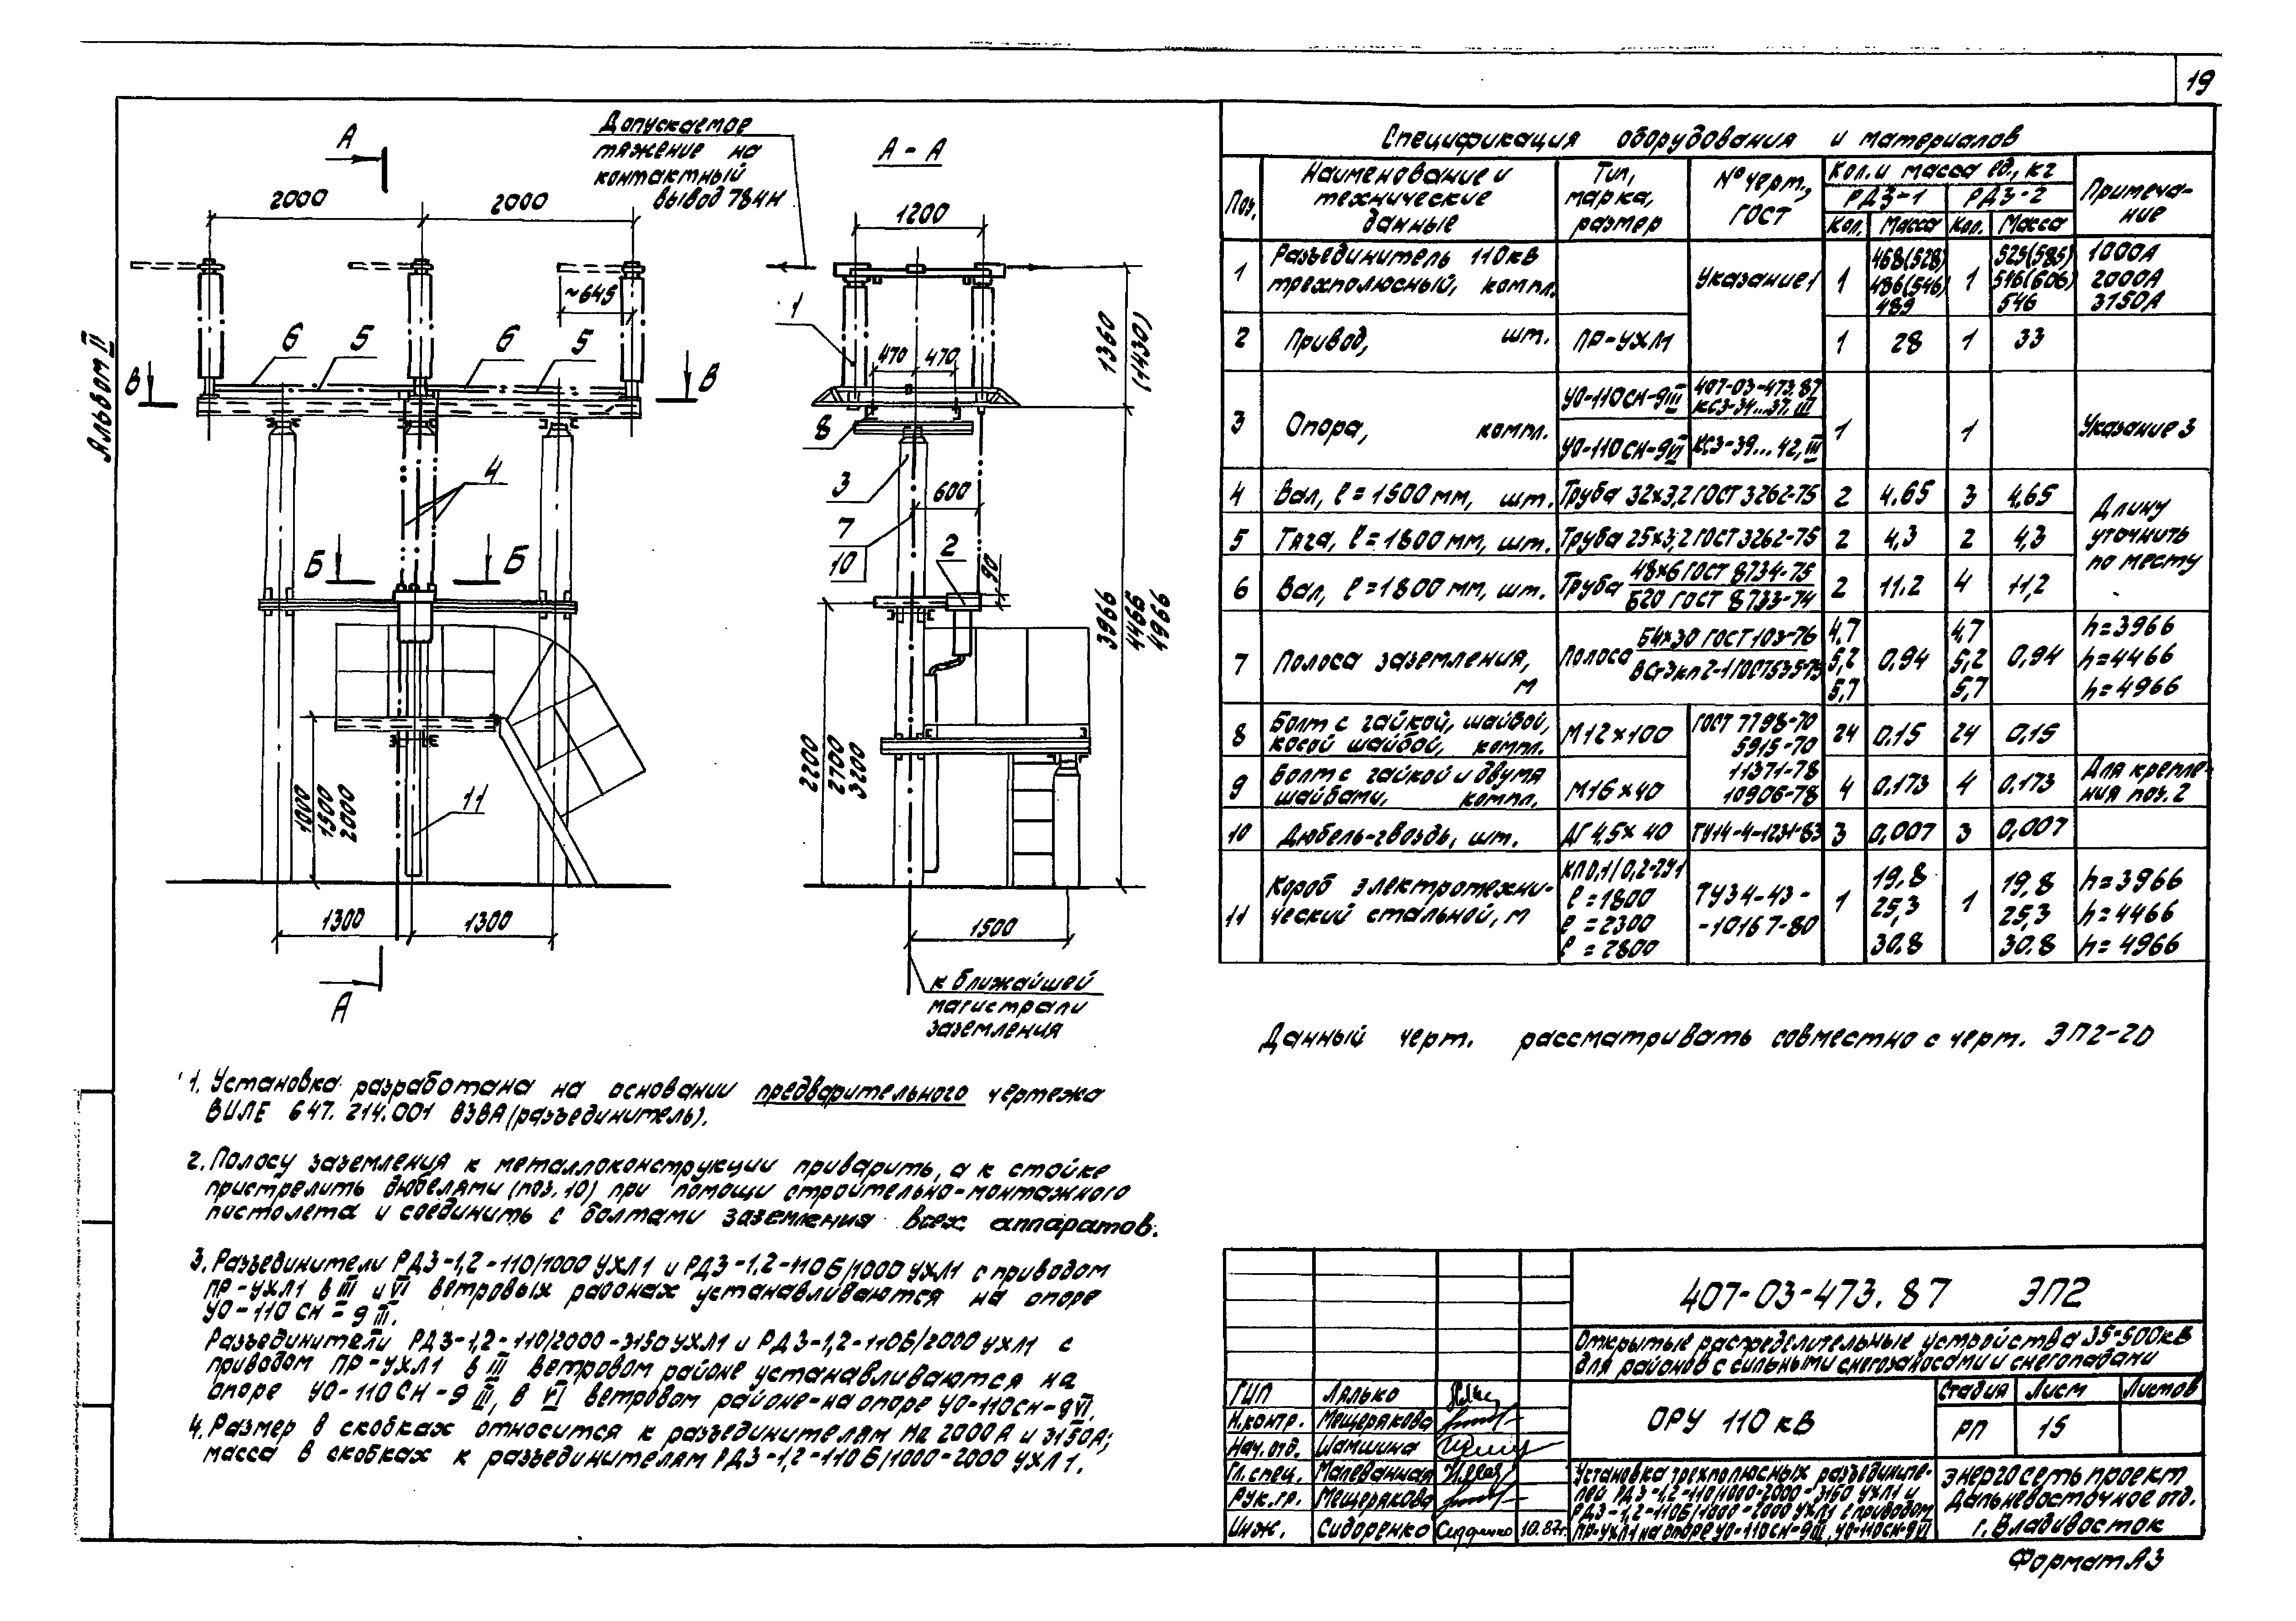 19
Альбом II
А
2000
2000
~645
6
5
6
5
В
В
4
Б
Б
11
1000
1500
2000
1300
1300
А
Допускаемое
тяжение на
контактный
вывод 784Н
А - А
1200
1
470
470
8
3
600
7
10
2
90
1360
(1430)
3966
4466
4966
2200
2700
3200
1500
к ближайшей
магистрали
заземления
Спецификация оборудования и материалов
Поз. Наименование и технические данные Тип, марка, размер № черт., ГОСТ Кол. и масса ед., кг Примечание
РДЗ-1 РДЗ-2
Кол. Масса Кол. Масса
1 Разъединитель 110кВ трехполюсный, компл. Указание 1 1 468(528) 486(546) 489 1 525(585) 546(606) 546 1000А 2000А 3150А
2 Привод, шт. ПР-УХЛ1 1 28 1 33
3 Опора, компл. УО-110СН-9III 407-03-473.87 КСЗ-34...37.III 1 1 Указание 3
УО-110СН-9VI КСЗ-39...42, III
4 Вал, l=1500 мм, шт. Труба 32х3,2 ГОСТ 3262-75 2 4.65 3 4,65 Длину уточнить по месту
5 Тяга, l=1800 мм, шт. Труба 25х3,2 ГОСТ 3262-75 2 4,3 2 4,3
6 Вал, l=1800 мм, шт. Труба 48х6 ГОСТ 8734-75 Б20 ГОСТ 8733-74 2 11.2 4 11,2
7 Полоса заземления, м Полоса Б4х30 ГОСТ 103-76 ВСт3кп2-1 ГОСТ 535-79 4,7 5,2 5,7 0,94 4,7 5,2 5,7 0,94 h=3966 h=4466 h=4966
8 Болт с гайкой, шайбой, косой шайбой, компл. М12х100 ГОСТ 7798-70 5915-70 24 0.15 24 0,15
9 Болт с гайкой и двумя шайбами, компл. М16х40 11371-78 10906-78 4 0.173 4 0.173 Для крепления поз. 2
10 Дюбель-гвоздь, шт. ДГ 4,5х40 ТУ14-4-1231-83 3 0,007 3 0,007
11 Короб электротехнический стальной, м КП0,1/0,2-2У1 l=1800 l=2300 l=2800 ТУ34-43-10167-80 1 19,8 25,3 30.8 1 19,8 25,3 30.8 h=3966 h=4466 h=4966
Данный черт. рассматривать совместно с черт. ЭП2-20
1. Установка разработана на основании предварительного чертежа
ВИЛЕ 647.214.001 ВЗВА (разъединитель).
2. Полосу заземления к металлоконструкции приварить, а к стойке
пристрелить дюбелями (поз. 10) при помощи строительно-монтажного
пистолета и соединить с болтами заземления всех аппаратов.
3. Разъединители РДЗ-1,2-110/1000 УХЛ1 и РДЗ-1,2-110Б/1000 УХЛ1 с приводом
ПР-УХЛ1 в III и VI ветровых районах устанавливаются на опоре
УО-110СН-9III.
Разъединители РДЗ-1,2-110/2000-3150 УХЛ1 и РДЗ-1,2-110Б/2000 УХЛ1 с
приводом ПР-УХЛ1 в III ветровом районе устанавливаются на
опоре УО-110СН-9III, в VI ветровом районе-на опоре УО-110СН-9VI.
4. Размер в скобках относится к разъединителям на 2000А и 3150А;
масса в скобках к разъединителям РДЗ-1,2-110Б/1000-2000 УХЛ1.
407-03-473.87 ЭП2
Открытые распределительные устройства 35-500кВ
для районов с сильными снегозаносами и снегопадами
ОРУ 110 кВ
Стадия Лист Листов
РП 15
ГИП Лялько
Н.контр. Мещерякова
Нач.отд. Шамшина
Гл.спец. Малеванная
Рук.гр. Мещерякова
Инж. Сидоренко 10.87г.
Установка трехполюсных разъедините-
лей РДЗ-1,2-110/1000-2000-3150 УХЛ1 и
РДЗ-1,2-110Б/1000-2000 УХЛ1 с приводом
ПР-УХЛ1 на опоре УО-110СН-9III, УО-110СН-9VI
Энергосетьпроект
Дальневосточное отд.
г. Владивосток
Формат А3